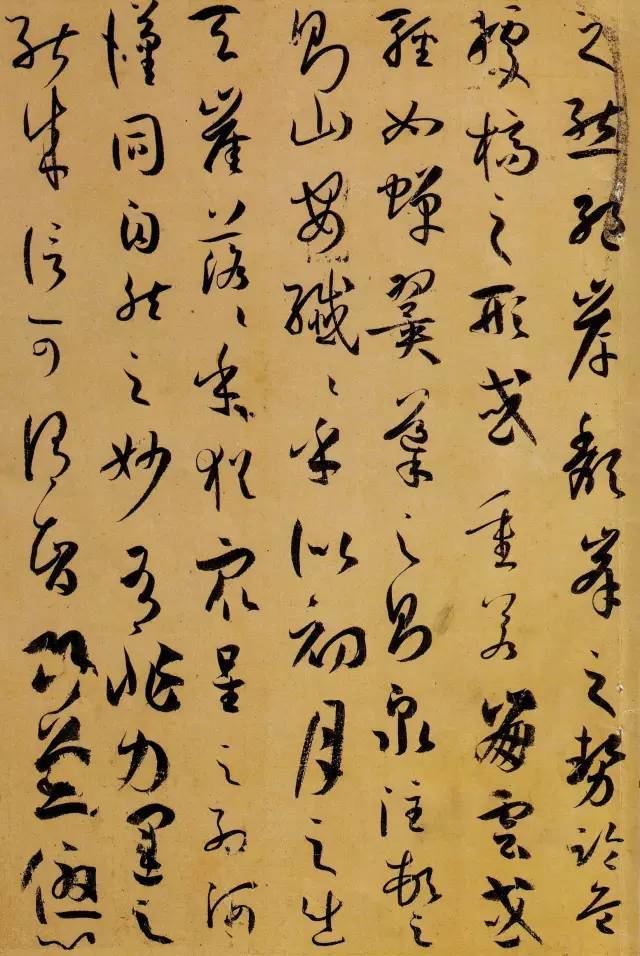 之態絕岸頹峰之勢臨危
據槁之形或重若崩雲或
輕如蟬翼導之則泉注頓之
則山安纖々乎似初月之出
天崖落々乎猶眾星之列河
漢同自然之妙有非力運之
能成信可謂智巧兼優心